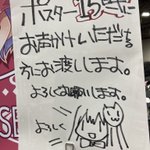 ポスター15時に
お声かけいただける
方にお渡しします。
よろしくお願いします。
よいしく
SE